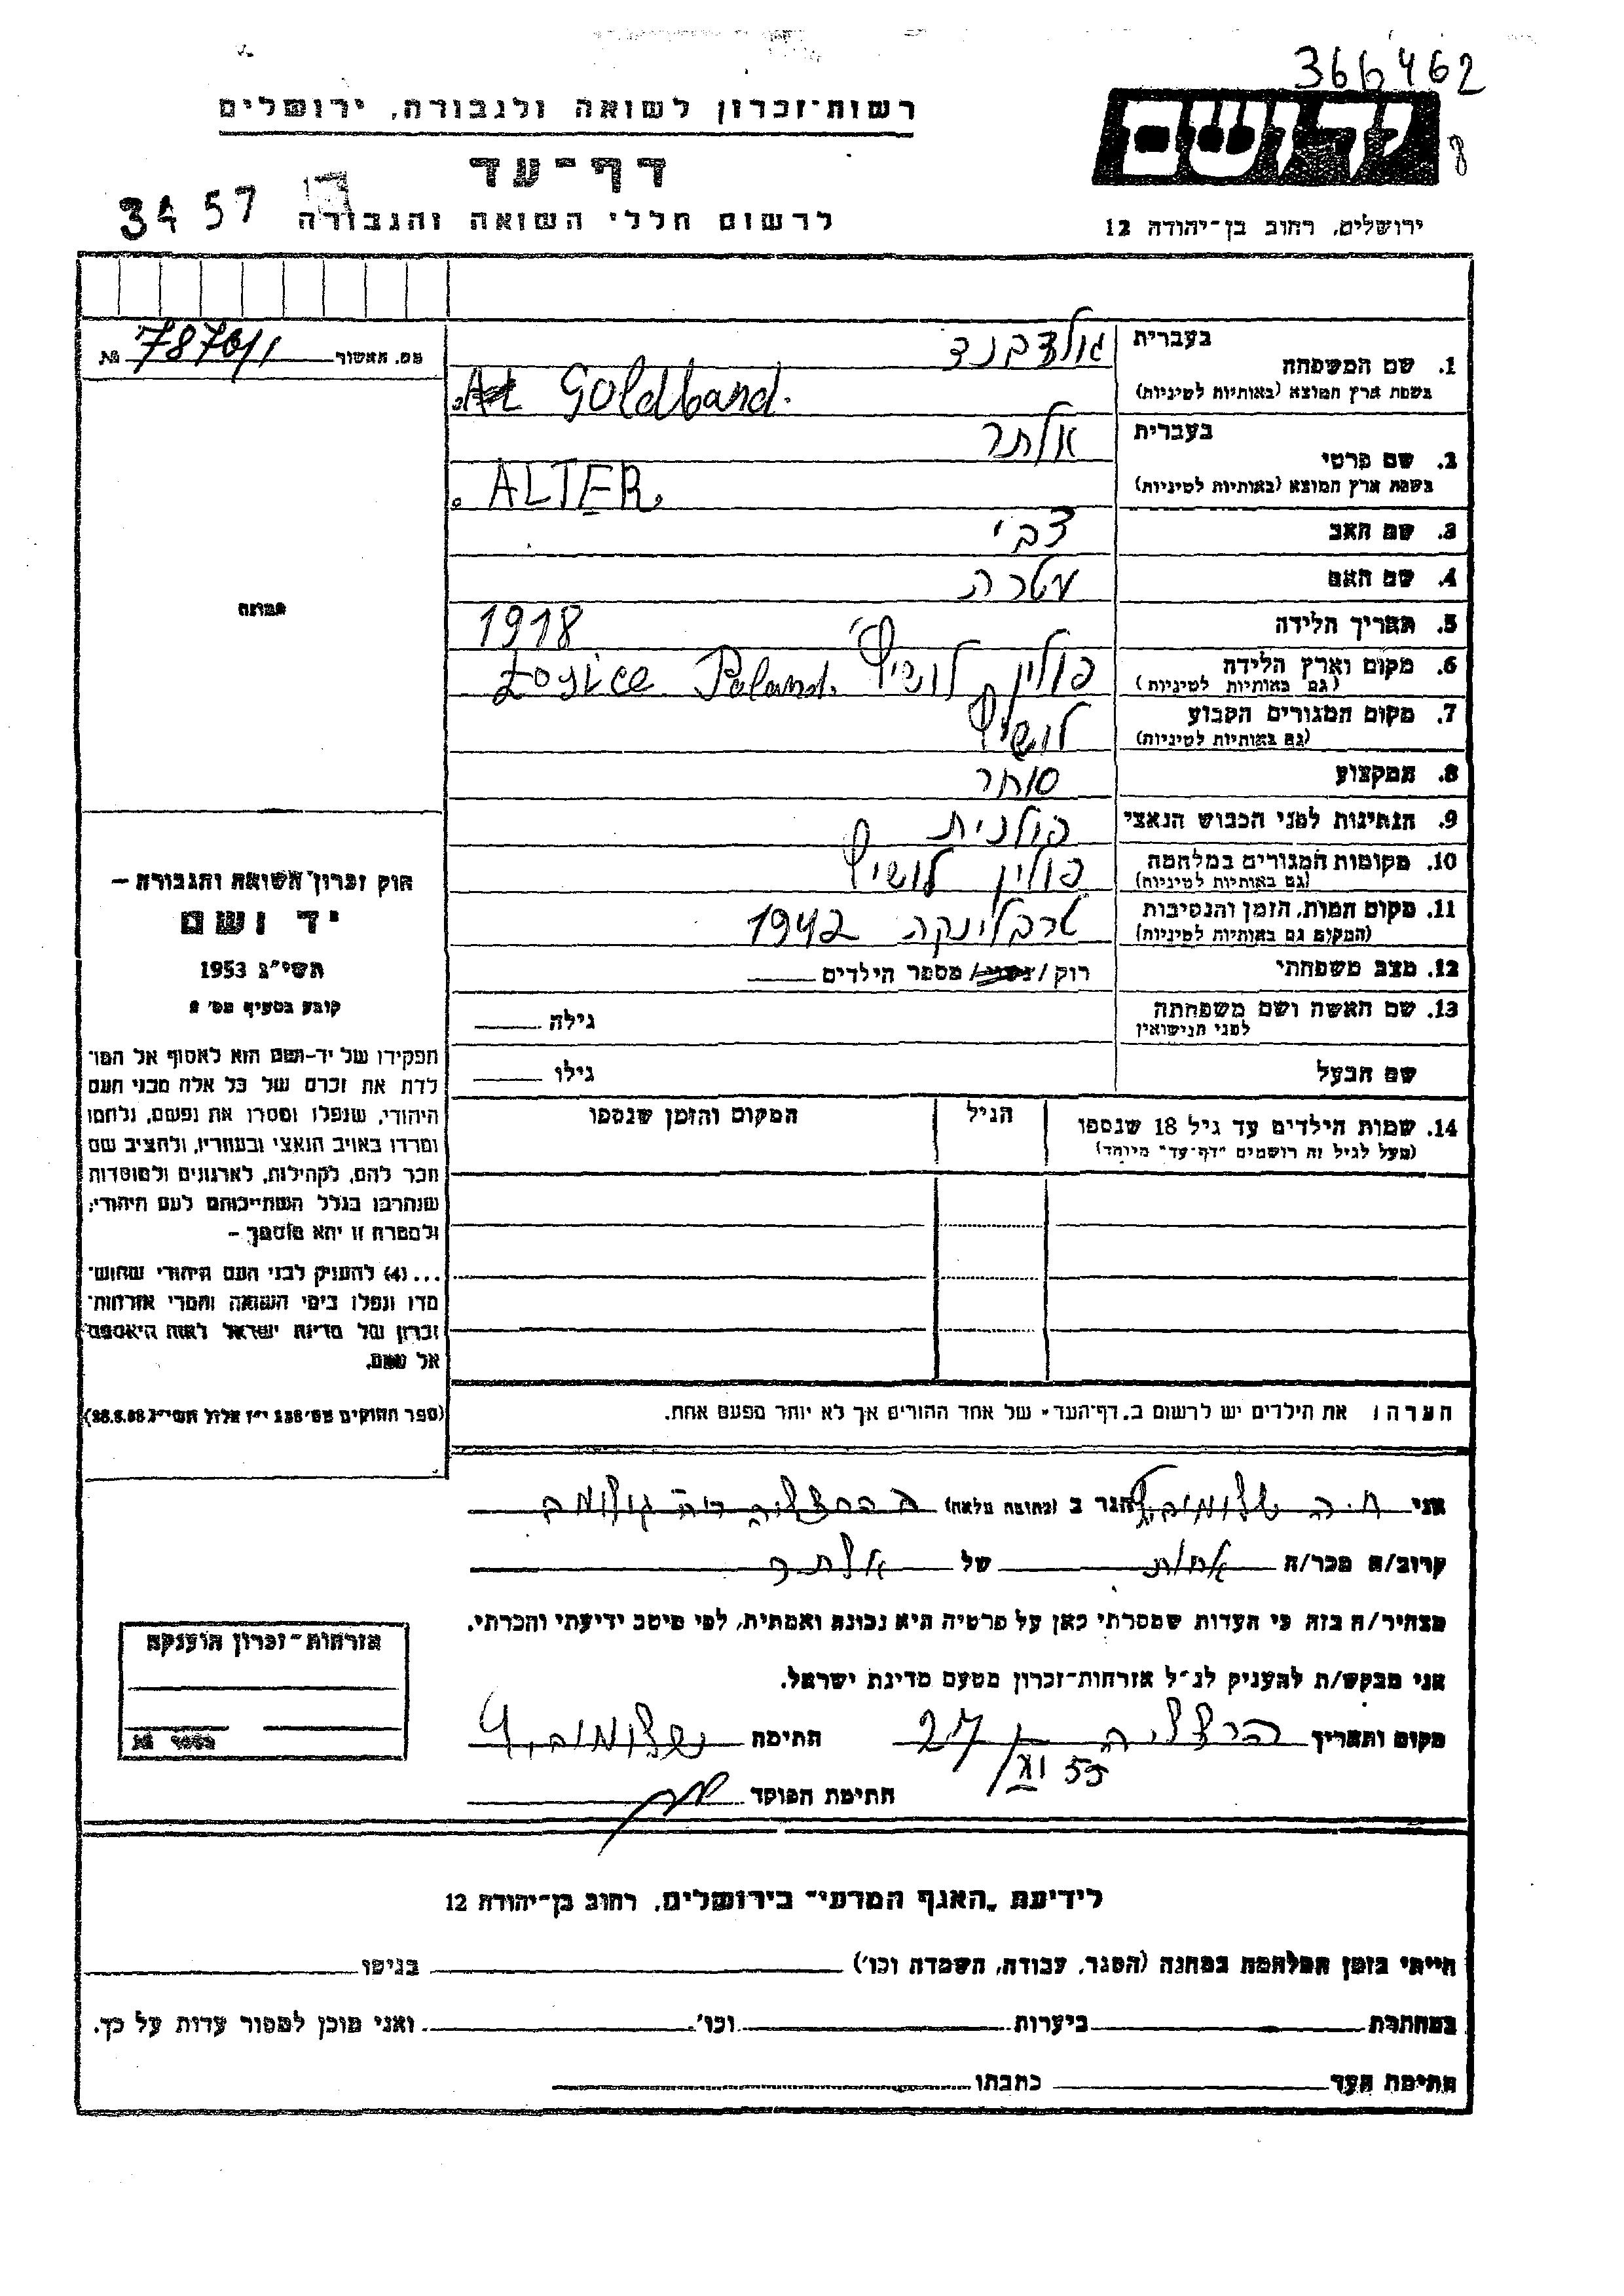 366462
רשות-זכרון לשואה ולגבורה, ירושלים
יד ושם
8
דף-עד
3457
לרשום חללי השואה והגבורה
ירושלים, רחוב בן-יהודה 12
מס. האשור 7876/1 №
1. שם המשפחה
בעברית גולדבנד
בשפת ארץ המוצא (באותיות לטיניות) Goldband.
2. שם פרטי
בעברית אלתר
בשפת ארץ המוצא (באותיות לטיניות) ALTER.
3. שם האב צבי
4. שם האם עטרה
5. תאריך הלידה 1918
6. מקום וארץ הלידה
(גם באותיות לטיניות) פולין לושיץ Łosice Poland.
7. מקום המגורים הקבוע
(גם באותיות לטיניות) לושיץ
8. המקצוע סוחר
9. הנתינות לפני הכבוש הנאצי פולנית
10. מקומות המגורים במלחמה
(גם באותיות לטיניות) פולין לושיץ
11. מקום המות, הזמן והנסיבות
(המקום גם באותיות לטיניות) טרבלינקה 1942
12. מצב משפחתי רוק/נשוי/מספר הילדים
13. שם האשה ושם משפחתה
לפני הנישואין
גילה
שם הבעל גילו
14. שמות הילדים עד גיל 18 שנספו
(מעל לגיל זה רושמים "דף-עד" מיוחד)
הגיל
המקום והזמן שנספו
הערה: את הילדים יש לרשום ב"דף-העד" של אחד ההורים אך לא יותר מפעם אחת.
תמונה
חוק זכרון השואה והגבורה –
יד ושם
תשי"ג 1953
קובע בסעיף מס' 2
תפקידו של יד-ושם הוא לאסוף אל המו־
לדת את זכרם של כל אלה מבני העם
היהודי, שנפלו ומסרו את נפשם, נלחמו
ומרדו באויב הנאצי ובעוזריו, ולהציב שם
וזכר להם, לקהילות, לארגונים ולמוסדות
שנחרבו בגלל השתייכותם לעם היהודי;
ולמטרה זו יהא מוסמך –
...(4) להעניק לבני העם היהודי שהוש־
מדו ונפלו בימי השואה והמרי אזרחות־
זכרון של מדינת ישראל לאות היאספם
אל עמם.
(ספר החוקים מס' 132 י"ז אלול תשי"ג 28.8.53)
אני חיה הגר ב (כתובת מלאה) בהרצליה
קרוב/ה מכר/ה אחות של אלתר
מצהיר/ה בזה כי העדות שמסרתי כאן על פרטיה היא נכונה ואמתית, לפי מיטב ידיעתי והכרתי.
אני מבקש/ת להעניק לנ"ל אזרחות-זכרון מטעם מדינת ישראל.
מקום ותאריך הרצליה 27/XI 55 חתימה
חתימת הפוקד
אזרחות-זכרון הוענקה
מספר №
לידיעת "האגף המדעי" בירושלים, רחוב בן-יהודה 12
הייתי בזמן המלחמה במחנה (הסגר, עבודה, השמדה וכו') בגיטו
במחתרת ביערות וכו'. ואני מוכן למסור עדות על כך.
חתימת העד כתבתו